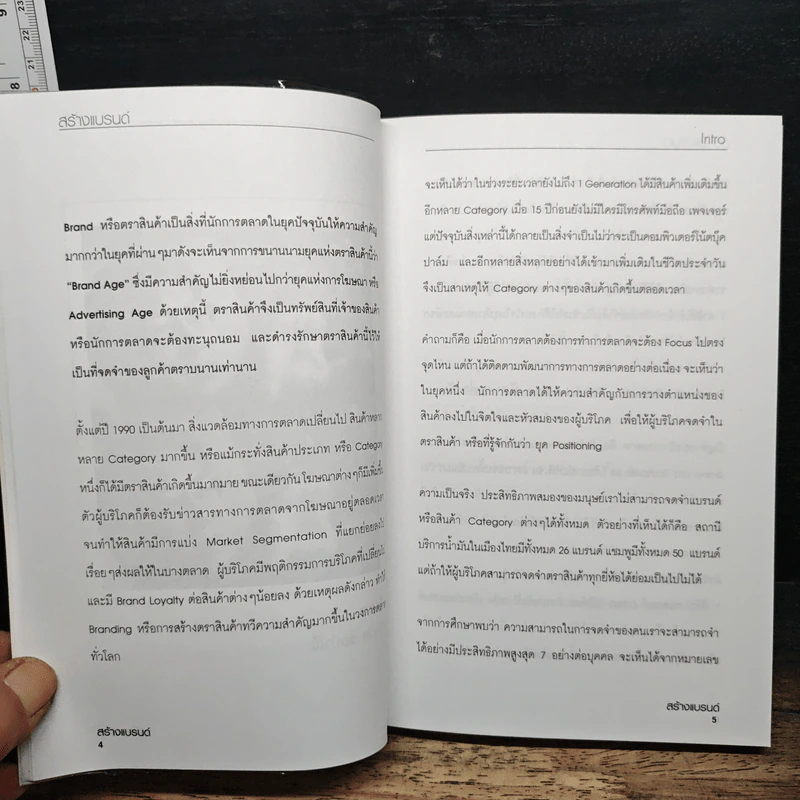 9
8
23
22
21
สร้างแบรนด์
Brand หรือตราสินค้าเป็นสิ่งที่นักการตลาดในยุคปัจจุบันให้ความสำคัญ
มากกว่าในยุคที่ผ่านๆมาดังจะเห็นจากการขนานนามยุคแห่งตราสินค้านี้ว่า
"Brand Age" ซึ่งมีความสำคัญไม่ยิ่งหย่อนไปกว่ายุคแห่งการโฆษณา หรือ
Advertising Age ด้วยเหตุนี้ ตราสินค้าจึงเป็นทรัพย์สินที่เจ้าของสินค้า
หรือนักการตลาดจะต้องทะนุถนอม และดำรงรักษาตราสินค้านี้ไว้ให้
เป็นที่จดจำของลูกค้าตราบนานเท่านาน
ตั้งแต่ปี 1990 เป็นต้นมา สิ่งแวดล้อมทางการตลาดเปลี่ยนไป สินค้าหลาก
หลาย Category มากขึ้น หรือแม้กระทั่งสินค้าประเภท หรือ Category
หนึ่งก็ได้มีตราสินค้าเกิดขึ้นมากมาย ขณะเดียวกัน โฆษณาต่างๆก็มีเพิ่มขึ้น
ตัวผู้บริโภคก็ต้องรับข่าวสารทางการตลาดจากโฆษณาอยู่ตลอดเวลา
จนทำให้สินค้ามีการแบ่ง Market Segmentation ที่แยกย่อยลงไป
เรื่อยๆส่งผลให้ในบางตลาด ผู้บริโภคมีพฤติกรรมการบริโภคที่เปลี่ยนไป
และมี Brand Loyalty ต่อสินค้าต่างๆน้อยลง ด้วยเหตุผลดังกล่าว ทำให้
Branding หรือการสร้างตราสินค้าทวีความสำคัญมากขึ้นในวงการตลาด
ทั่วโลก
สร้างแบรนด์
4
Intro
จะเห็นได้ว่า ในช่วงระยะเวลายังไม่ถึง 1 Generation ได้มีสินค้าเพิ่มเติมขึ้น
อีกหลาย Category เมื่อ 15 ปีก่อนยังไม่มีใครมีโทรศัพท์มือถือ เพจเจอร์
แต่ปัจจุบันสิ่งเหล่านี้ได้กลายเป็นสิ่งจำเป็นไม่ว่าจะเป็นคอมพิวเตอร์โน้ตบุ๊ค
ปาล์ม และอีกหลายสิ่งหลายอย่างได้เข้ามาเพิ่มเติมในชีวิตประจำวัน
จึงเป็นสาเหตุให้ Category ต่างๆของสินค้าเกิดขึ้นตลอดเวลา
คำถามก็คือ เมื่อนักการตลาดต้องการทำการตลาดจะต้อง Focus ไปตรง
จุดไหน แต่ถ้าได้ติดตามพัฒนาการทางการตลาดอย่างต่อเนื่อง จะเห็นว่า
ในยุคหนึ่ง นักการตลาดได้ให้ความสำคัญกับการวางตำแหน่งของ
สินค้าลงไปในจิตใจและหัวสมองของผู้บริโภค เพื่อให้ผู้บริโภคจดจำใน
ตราสินค้า หรือที่รู้จักกันว่า ยุค Positioning
ความเป็นจริง ประสิทธิภาพสมองของมนุษย์เราไม่สามารถจดจำแบรนด์
หรือสินค้า Category ต่างๆได้ทั้งหมด ตัวอย่างที่เห็นได้ก็คือ สถานี
บริการน้ำมันในเมืองไทยมีทั้งหมด 26 แบรนด์ แชมพูมีทั้งหมด 50 แบรนด์
แต่ถ้าให้ผู้บริโภคสามารถจดจำตราสินค้าทุกยี่ห้อได้ย่อมเป็นไปไม่ได้
จากการศึกษาพบว่า ความสามารถในการจดจำของคนเราจะสามารถจำ
ได้อย่างมีประสิทธิภาพสูงสุด 7 อย่างต่อบุคคล จะเห็นได้จากหมายเลข
สร้างแบรนด์
5